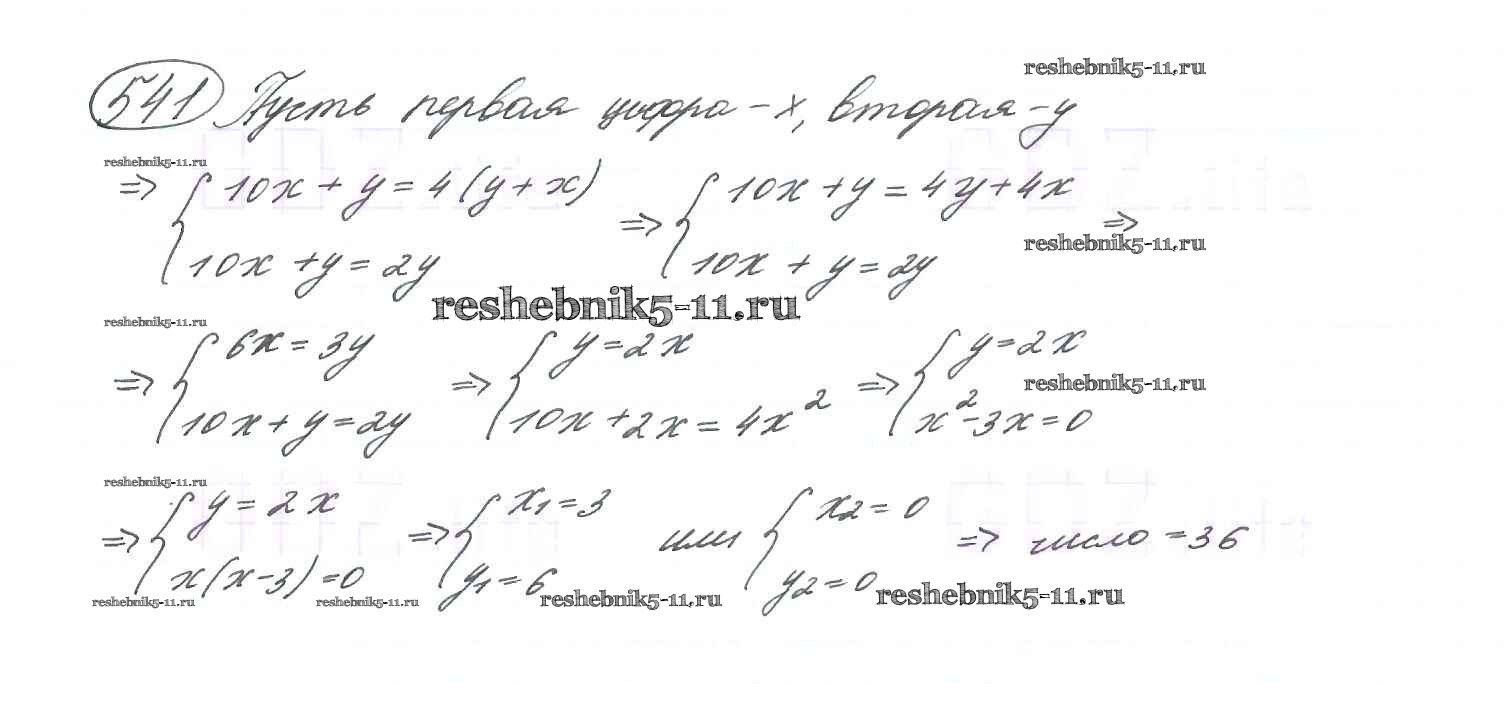 reshebnik5-11.ru
541 Пусть первая цифра - x, вторая - y
reshebnik5-11.ru
=> { 10x + y = 4(y + x) => { 10x + y = 4y + 4x =>
10x + y = 2y 10x + y = 2y
reshebnik5-11.ru
reshebnik5-11.ru
reshebnik5-11.ru
=> { 6x = 3y => { y = 2x => { y = 2x
10x + y = 2y 10x + 2x = 4x² x² - 3x = 0
reshebnik5-11.ru
reshebnik5-11.ru
=> { y = 2x => { x1 = 3 или { x2 = 0 => число = 36
x(x - 3) = 0 y1 = 6 y2 = 0
reshebnik5-11.ru reshebnik5-11.ru reshebnik5-11.ru reshebnik5-11.ru